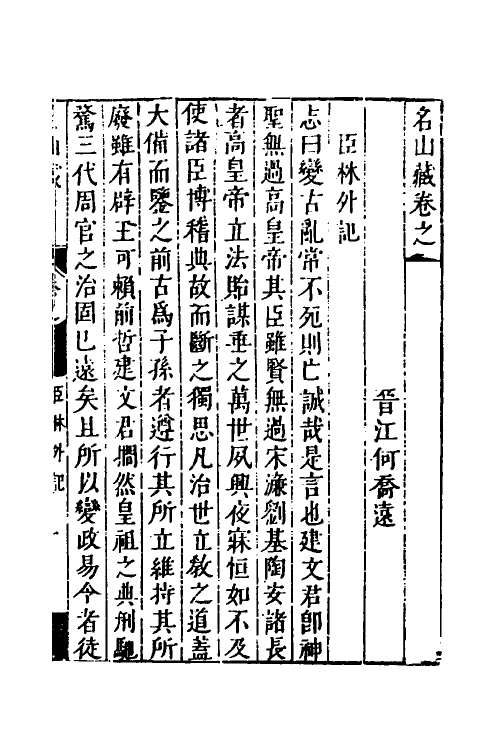 名山藏卷之
晉江何喬遠
臣林外記
志曰變古亂常不死則亡誠哉是言也建文君卽神
聖無過高皇帝其臣雖賢無過宋濂劉基陶安諸長
者高皇帝立法貽謀垂之萬世夙興夜寐恒如不及
使諸臣博稽典故而斷之獨思凡治世立敎之道蓋
大備而鑒之前古爲子孫者遵行其所立維持其所
廢雖有辟王可賴前哲建文君擱然皇祖之典刑馳
騖三代周官之治固已遠矣且所以變政易令者徒
臣林外記